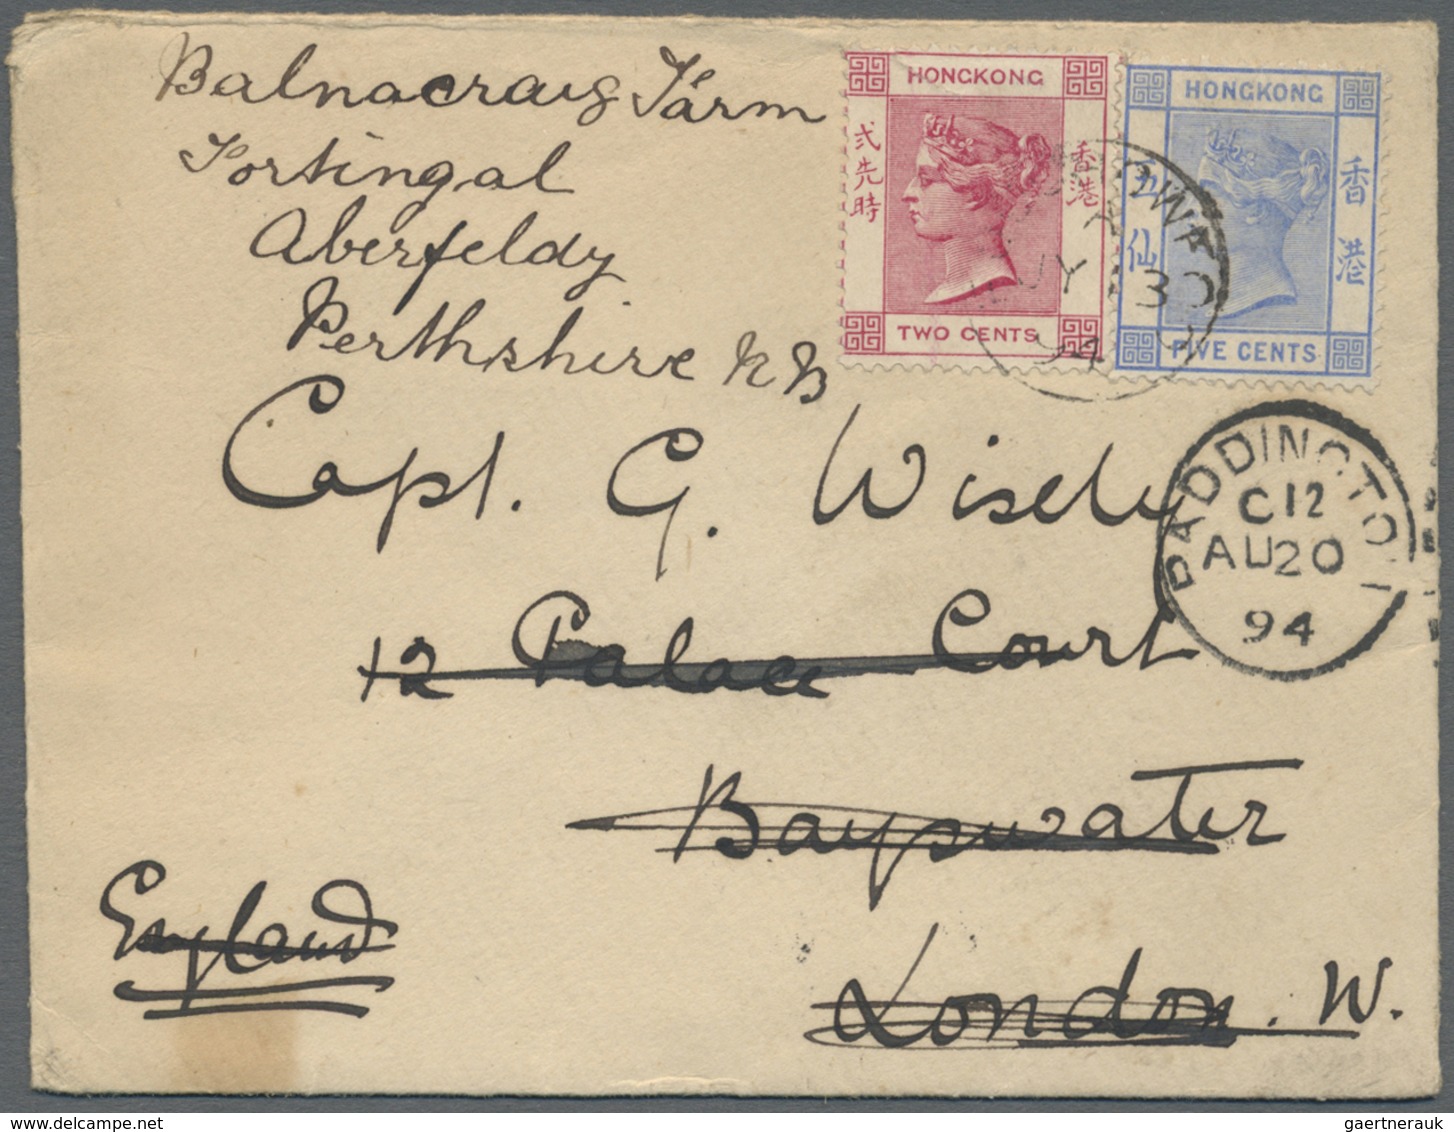 Balnacraig Farm
Fortingal
Aberfeldy
Perthshire N B
Capt. G. Wisely
12 Palace Court
Bayswater
London. W.
England
HONGKONG
弍先時
香港
TWO CENTS
HONGKONG
五仙
香港
FIVE CENTS
A
JY 30
94
PADDINGTON
C12
AU20
94
gaertnerauk @ delcampe.net